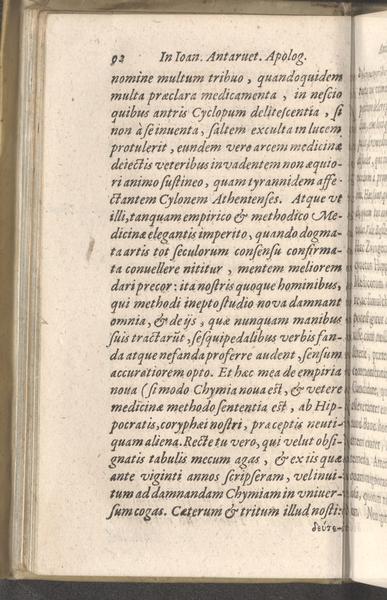 92 In Ioan. Antaruet. Apolog.
nomine multum tribuo, quandoquidem
multa præclara medicamenta, in nescio
quibus antris Cyclopum delitescentia, si
non à se inuenta, saltem exculta in lucem
protulerit, eundem vero arcem medicinæ
deiectis veteribus inuadentem non æquio-
ri animo sustineo, quam tyrannidem affe-
ctantem Cylonem Athenienses. Atque vt
illi, tanquam empirico & methodico Me-
dicinæ elegantis imperito, quando dogma-
ta artis tot seculorum consensu confirma-
ta conuellere nititur, mentem meliorem
dari precor: ita nostris quoque hominibus,
qui methodi inepto studio noua damnant
omnia, & de ijs, quæ nunquam manibus
suis tractarūt, sesquipedalibus verbis fan-
da atque nefanda proferre audent, sensum
accuratiorem opto. Et hæc mea de empiria
noua (si modo Chymia noua est, & vetere
medicinæ methodo sententia est, ab Hip-
pocratis, coryphæi nostri, præceptis neuti-
quam aliena. Recte tu vero, qui velut obsi-
gnatis tabulis mecum agas, & ex iis quæ
ante viginti annos scripseram, vel inui-
tum ad damnandam Chymiam in vniuer-
sum cogas. Cæterum & tritum illud nosti:
δεύτε-